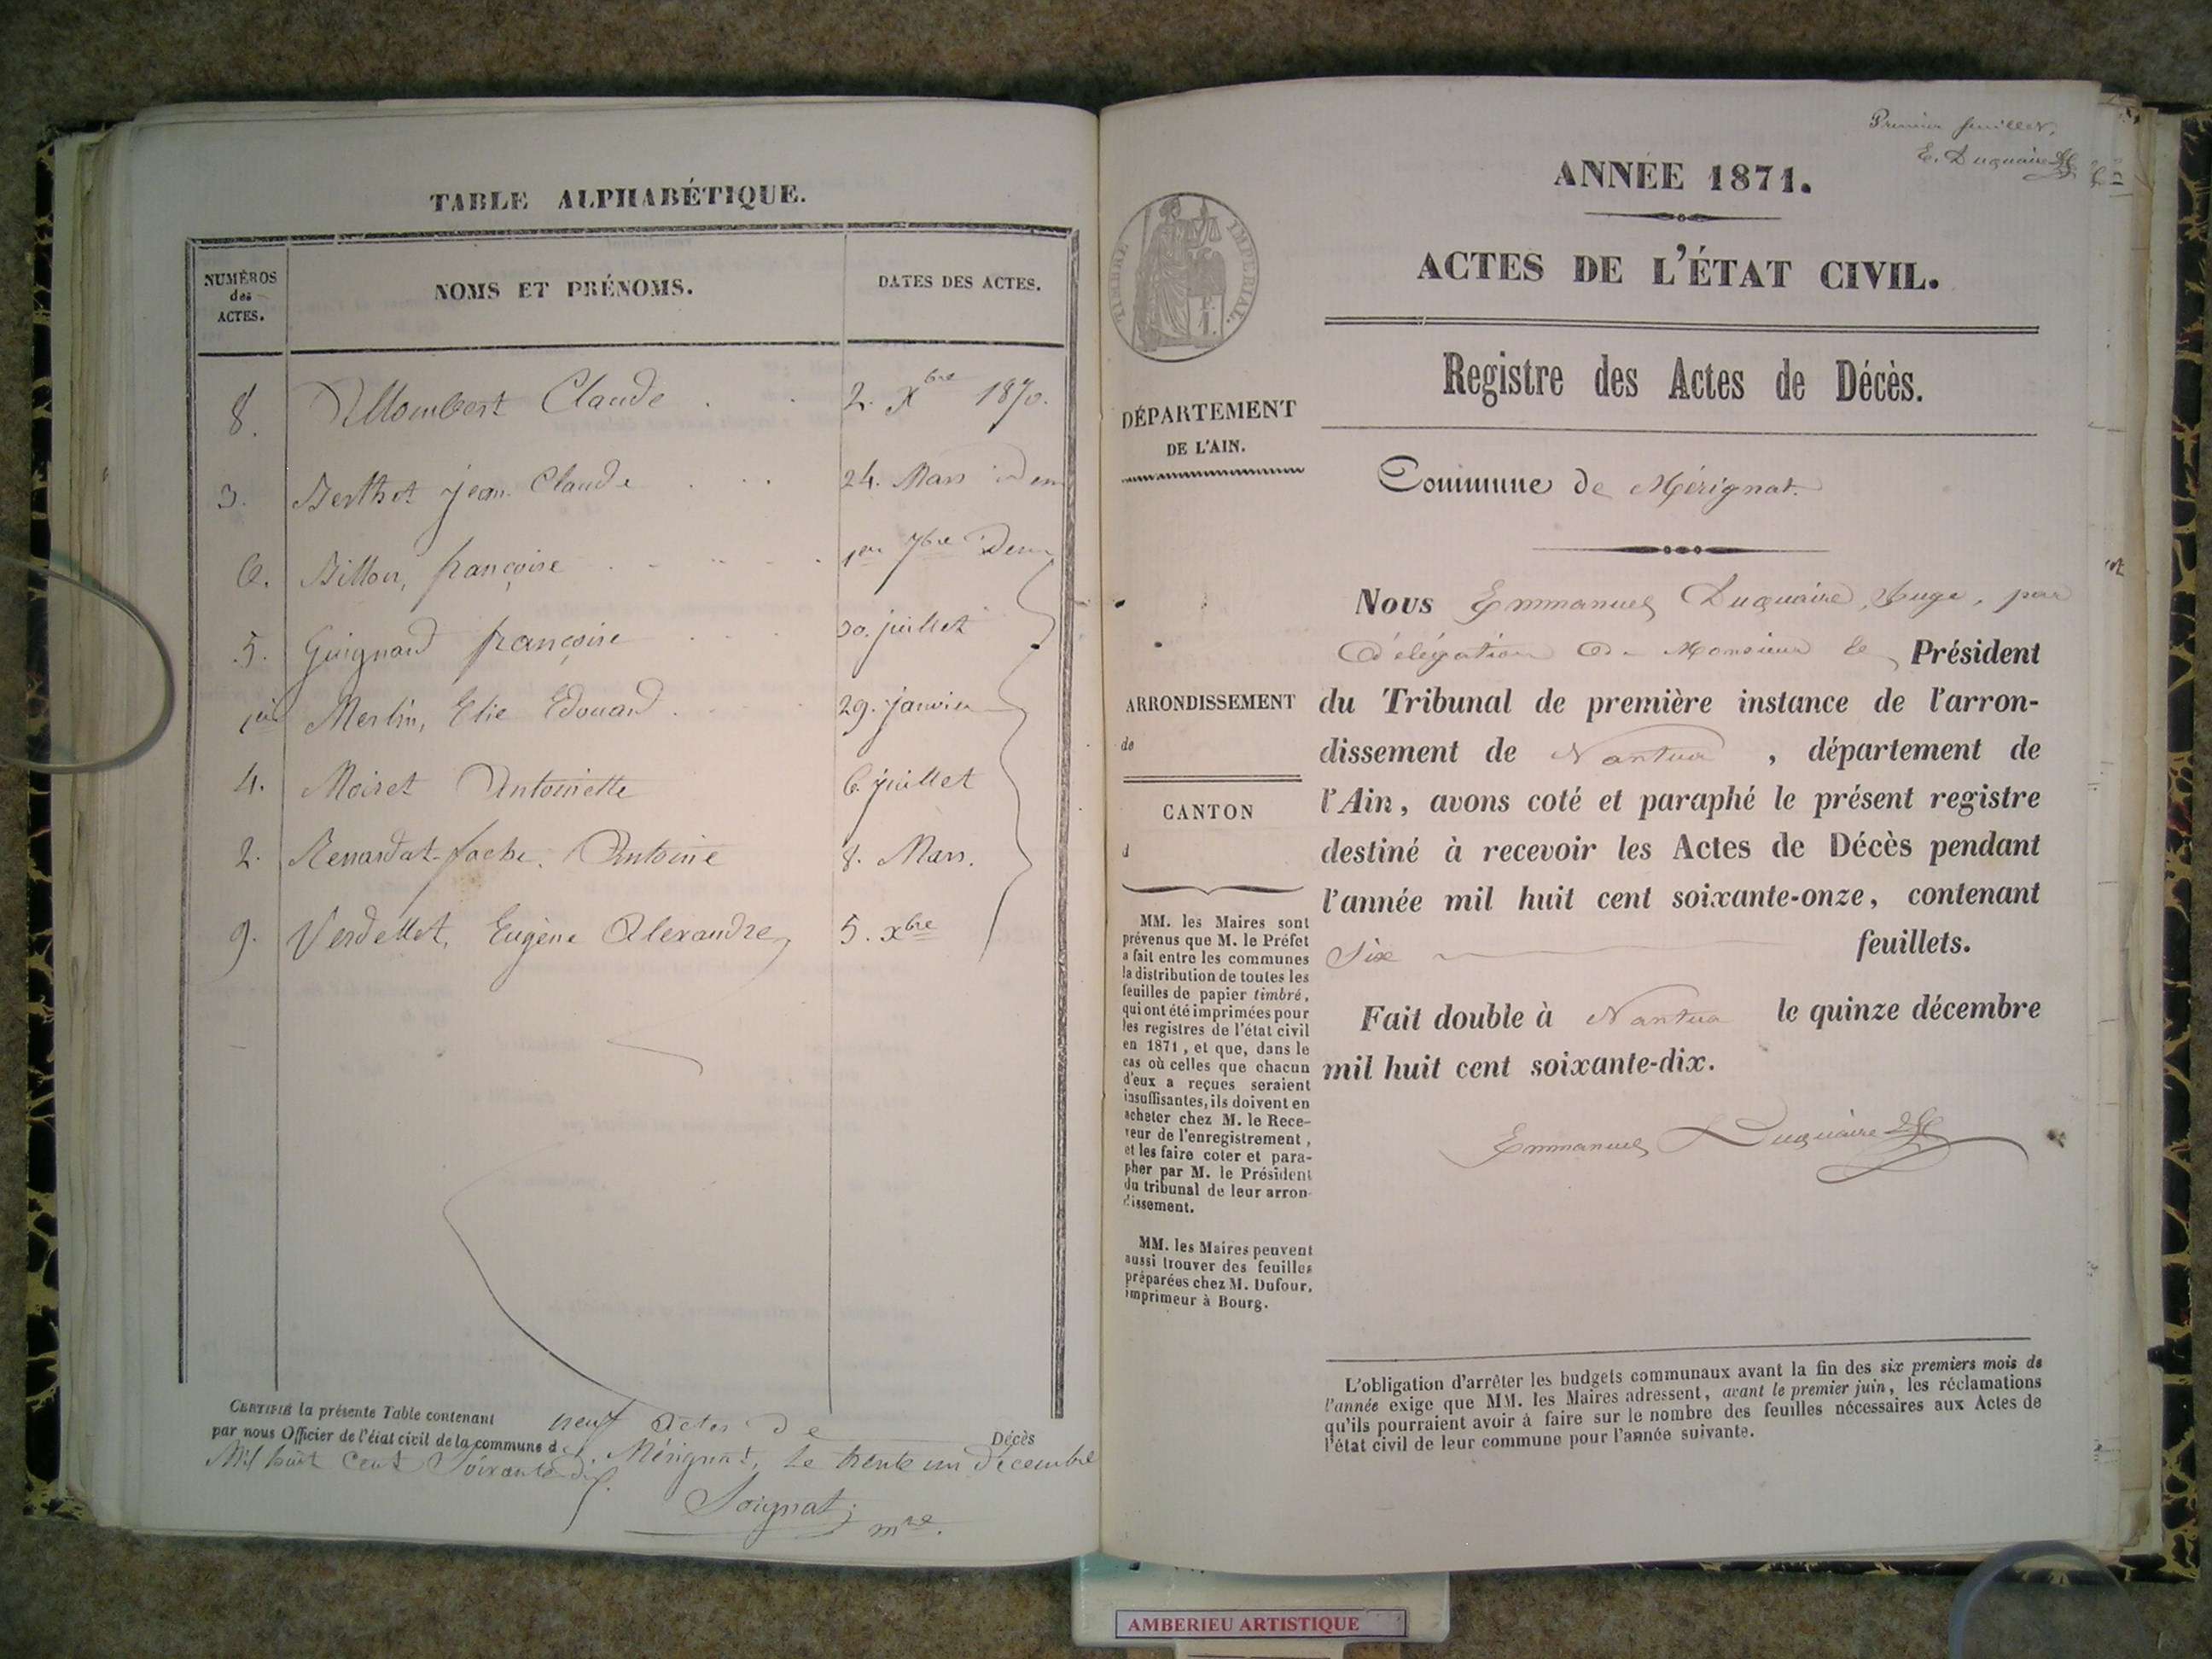 TABLE ALPHABÉTIQUE.
NUMÉROS
des
ACTES.
NOMS ET PRÉNOMS.
DATES DES ACTES.
8. Allombert Claude . . 2. Xbre 1870.
3. Berthet Jean Claude . . . 24. Mars idem
6. Billon, françoise . . . . 1er 7bre idem
5. Guignard françoise . . . 30. juillet
1er Merlin, Elie Edouard . . . 29. janvier
4. Moiret Antoinette 6. juillet
2. Renardat-fache, Antoine 8. Mars.
9. Verdellet, Eugène Alexandre, 5. xbre
CERTIFIÉ la présente Table contenant neuf actes de Décès
par nous Officier de l'état civil de la commune de Mérignat, le trente un décembre
Mil huit Cent Soixante dix.
Soignat, mre.
Premier feuillet,
E. Duquaire
ANNÉE 1871.
ACTES DE L'ÉTAT CIVIL.
TIMBRE IMPÉRIAL.
1 F.
Registre des Actes de Décès.
DÉPARTEMENT
DE L'AIN.
Commune de Mérignat.
Nous Emmanuel Duquaire, Juge, par
délégation de Monsieur le Président
du Tribunal de première instance de l'arron-
dissement de Nantua, département de
l'Ain, avons coté et paraphé le présent registre
destiné à recevoir les Actes de Décès pendant
l'année mil huit cent soixante-onze, contenant
Six feuillets.
Fait double à Nantua le quinze décembre
mil huit cent soixante-dix.
Emmanuel Duquaire
ARRONDISSEMENT
de
CANTON
d
MM. les Maires sont
prévenus que M. le Préfet
a fait entre les communes
la distribution de toutes les
feuilles de papier timbré,
qui ont été imprimées pour
les registres de l'état civil
en 1871, et que, dans le
cas où celles que chacun
d'eux a reçues seraient
insuffisantes, ils doivent en
acheter chez M. le Rece-
veur de l'enregistrement,
et les faire coter et para-
pher par M. le Président
du tribunal de leur arron-
dissement.
MM. les Maires peuvent
aussi trouver des feuilles
préparées chez M. Dufour,
imprimeur à Bourg.
L'obligation d'arrêter les budgets communaux avant la fin des six premiers mois de
l'année exige que MM. les Maires adressent, avant le premier juin, les réclamations
qu'ils pourraient avoir à faire sur le nombre des feuilles nécessaires aux Actes de
l'état civil de leur commune pour l'année suivante.
AMBERIEU ARTISTIQUE